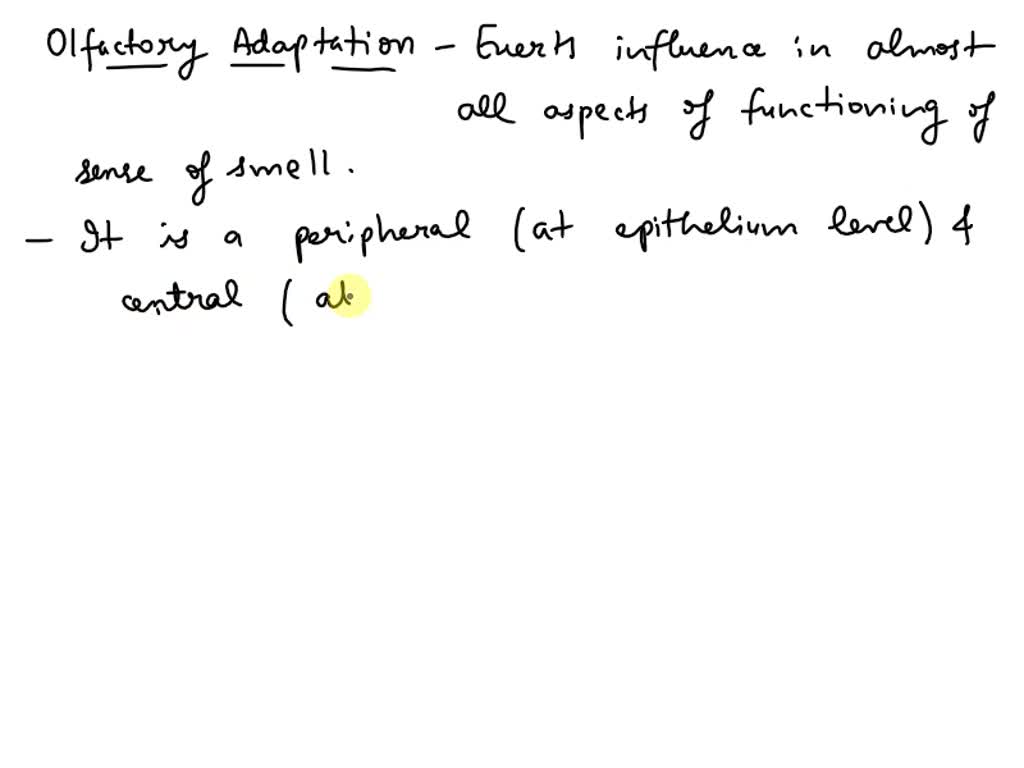 Olfactory Adaptation - Exerts influence in almost
all aspects of functioning of
sense of smell.
- It is a peripheral (at epithelium level) &
central ( at